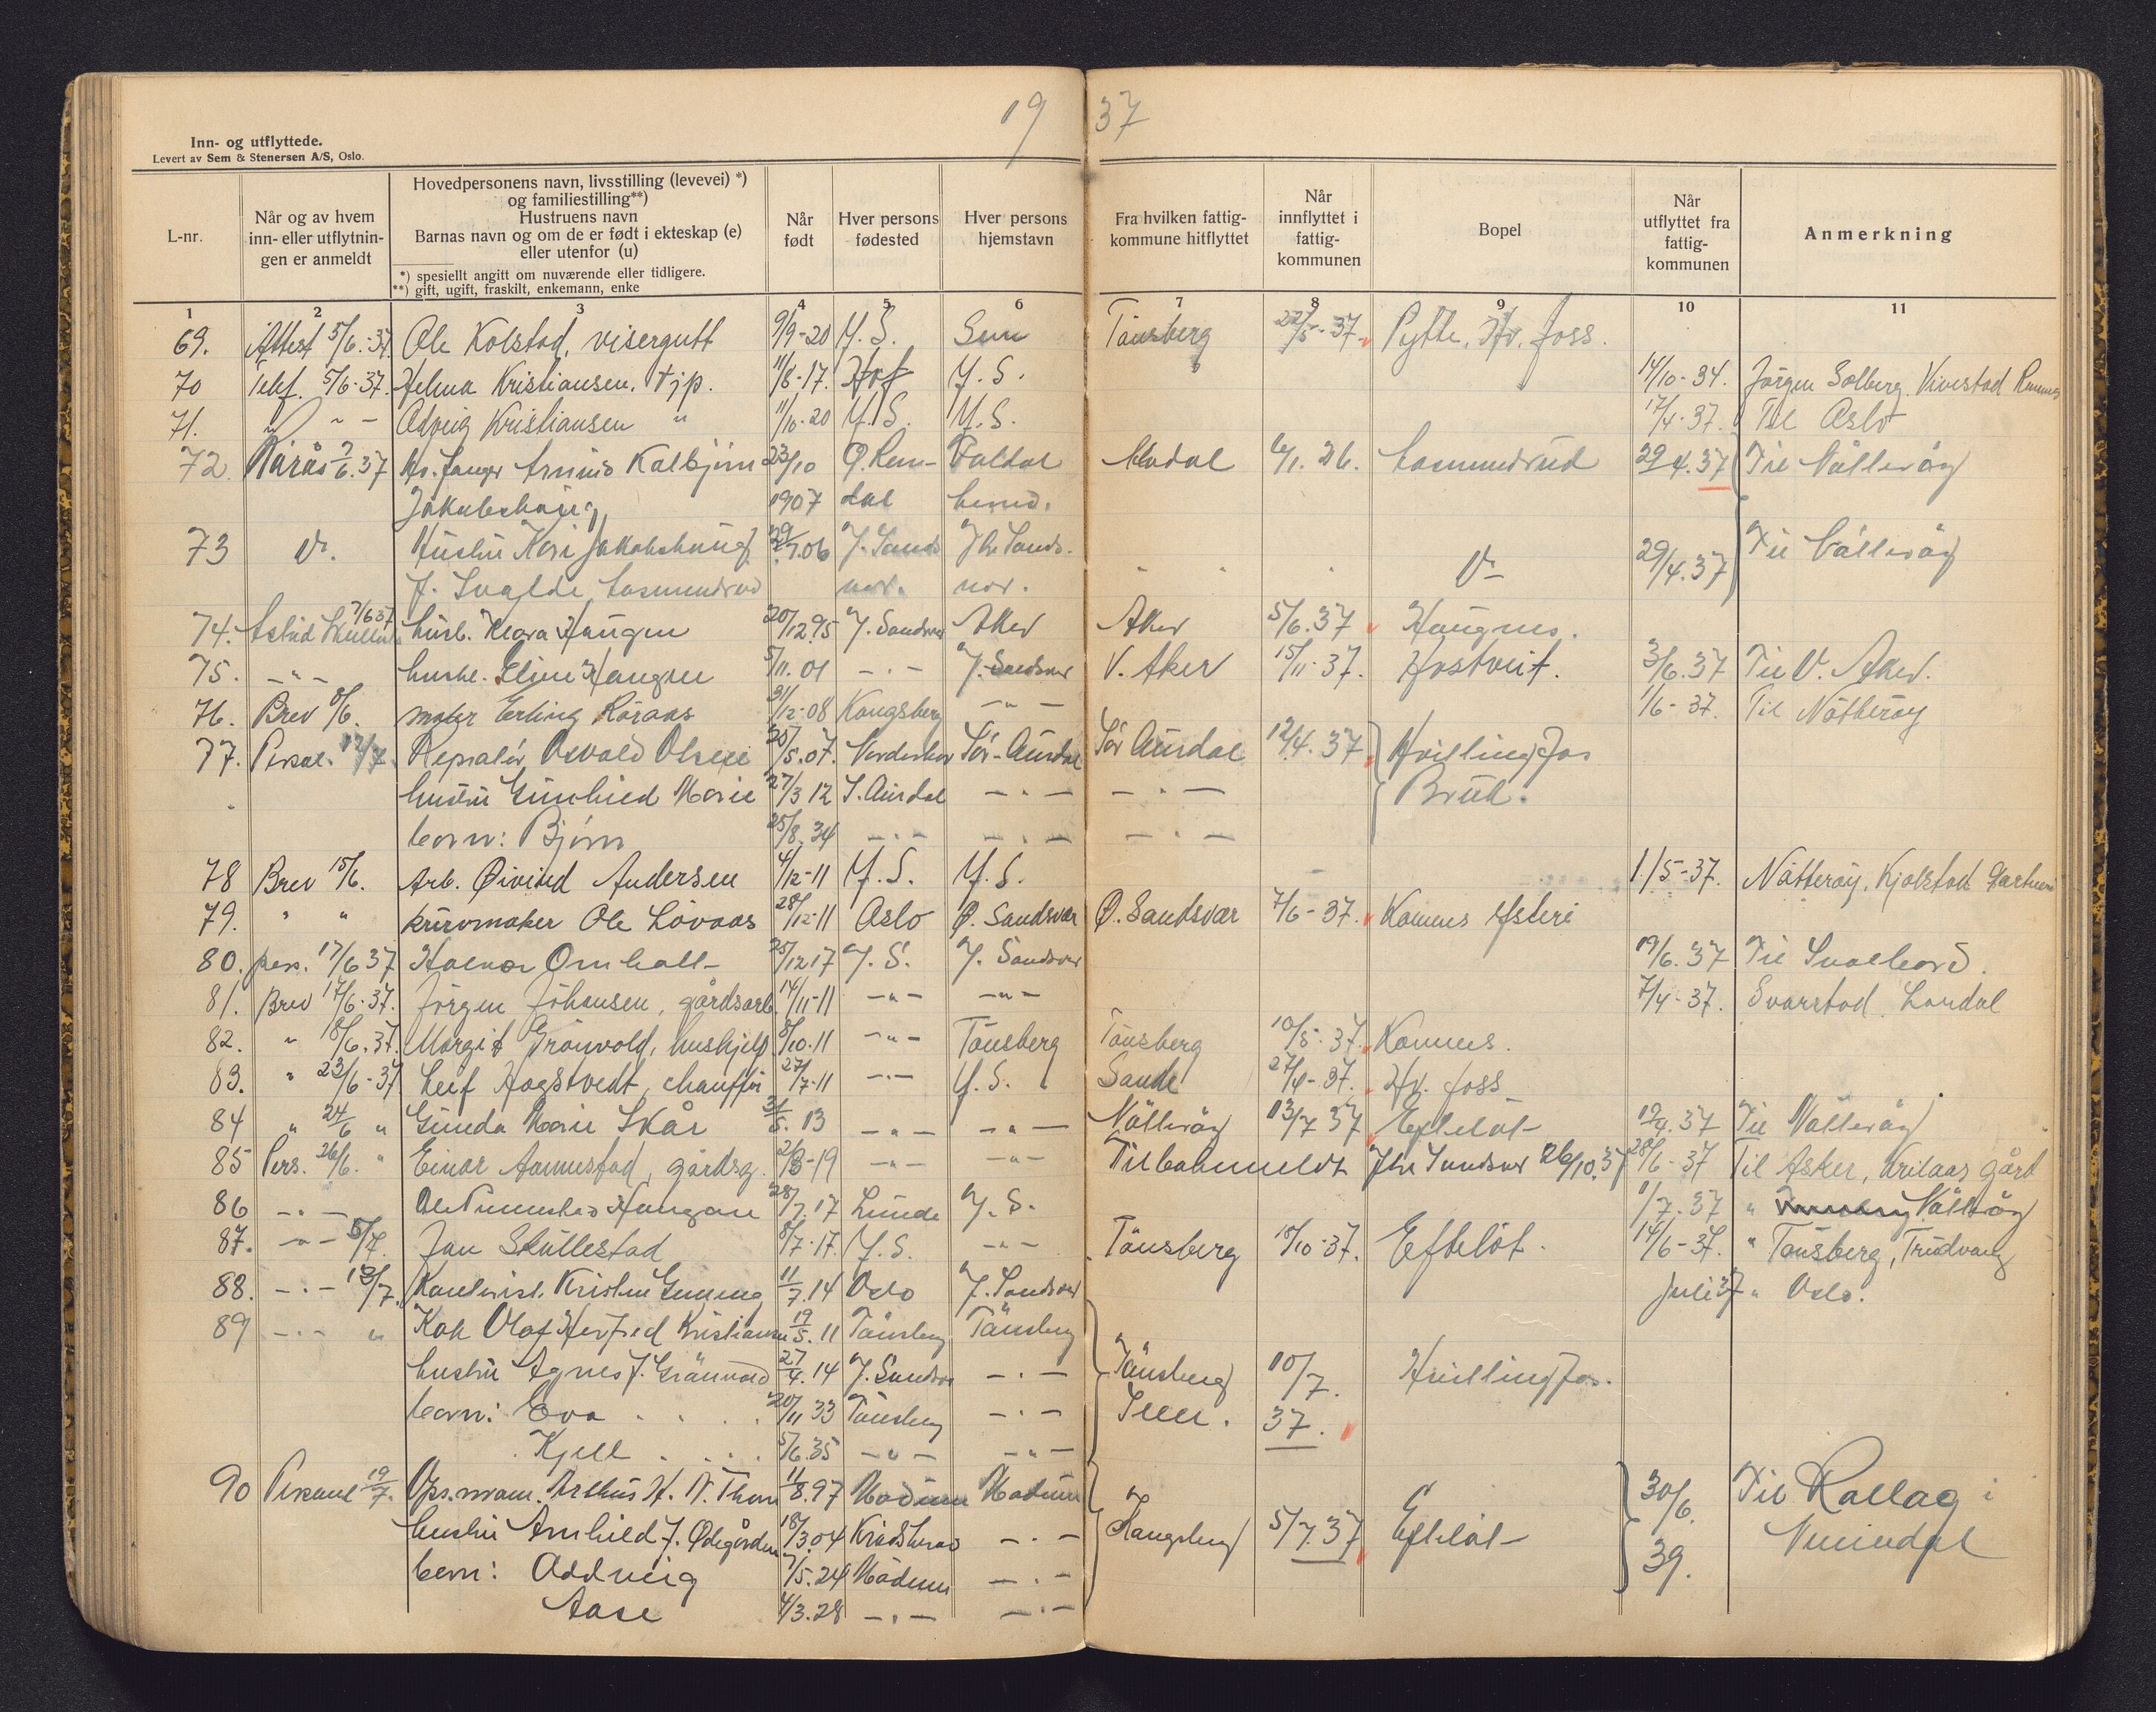 19 37
Inn- og utflyttede.
Levert av Sem & Stenersen A/S, Oslo.
L-nr.
Når og av hvem inn- eller utflytnin-gen er anmeldt
Hovedpersonens navn, livsstilling (levevei) *)
og familiestilling**)
Hustruens navn
Barnas navn og om de er født i ekteskap (e)
eller utenfor (u)
*) spesiellt angitt om nuværende eller tidligere.
**) gift, ugift, fraskilt, enkemann, enke
Når født
Hver persons fødested
Hver persons hjemstavn
Fra hvilken fattig-kommune hitflyttet
Når innflyttet i fattig-kommunen
Bopel
Når utflyttet fra fattig-kommunen
Anmerkning
1 2 3 4 5 6 7 8 9 10 11
69. Attest 5/6.-37. Ole Kolstad, visergutt 9/9-20 Y.S. Sem Tönsberg 22/5-37. Pytte, Hv. foss.
70 Telef. 5/6-37. Helma Kristiansen, tjp. 11/8-17. Hof Y.S. 14/10-34. Jörgen Solberg, Vivestad
71. " - Kristiansen " 11/10-20 Y.S. Y.S. 17/4-37. Til Oslo
72. 7/6.37 Kolbjörn 23/10 6/1.26. 29/4.37 Til Nötteröy
Jakobshaug, 1907 dal
73 Hustru Kari Jakobshaug 29/7.06 Y. Sands Ytre Sands. 29/4.37 Til Nötteröy
f. vær. vær.
74. 7/6 37 hush. Klara Haugen 20/12.95 Y. Sandsvær Aker Aker 5/6.37 Haugnes.
75. -"- hush. Eline Haugen 5/11.01 -"- Y. Sandsvær V. Aker 15/11-37. Hostveit. 3/6.37 Til V. Aker.
76. Brev 8/6. maler Erling Röraas 31/12-08 Kongsberg -"- 1/6-37. Til Nötteröy
77. 12/7. Osvald Olsen 20/5.07. Sör-Aurdal Sör Aurdal 12/4.37 Hvillingfos
hustru Gunhild Marie 27/3 12 S. Aurdal -"- -"- Bruk.
barn: Björn 25/8.34 -"- -"- -"-
78 Brev 15/6. Arb. Øivind Andersen 4/12-11 Y.S. Y.S. 1./5-37. Nötteröy, Kjølstad Gartneri
79. " " kurvmaker Ole Lövaas 28/12-11 Oslo Ø. Sandsvær Ø. Sandsvær 7/6-37. Komnes Ysteri
80. pers. 17/6 37 25/12 17 Y.S. Y. Sandsvær 19/6.37 Til Svalbard.
81. Brev 17/6-37. Jörgen Johansen, gårdsarb. 14/11-11 -"- -"- 7/4-37. Svarstad, Lardal
82. " 18/6.37. Margit Grönvold, hushjelp 8/10.11 -"- Tönsberg Tönsberg 10/5-37. Komnes.
83. " 23/6-37 Leif Hogstvedt, chaufför 27/7-11 -"- Y.S. Sande 27/4-37. Hv. foss
84 " 24/6 " Gunda Marie Skår 13 -"- -"- Nötteröy 13/7 37 Efteløt 19/4.37 Til Nötteröy
85 Pers. 26/6. " Einar Aamestad, gårdsg. -19 -"- -"- Tilbakemeldt Ytre Sandsvær 26/10.37 28/6-37 Til Asker, gård
86 -"- Haugan 28/7.17 Lunde Y.S. 1/7.37 " Nötteröy
87. -"- 5/7. Jan Skullestad 8/7-17. Y.S. -"- Tönsberg 15/10-37. Efteløt. 14/6-37. " Tönsberg, Trudvang
88. -"- 13/7. Kristen 11/7.14 Oslo Y. Sandsvær Juli 37 " Oslo.
89 -"- " Kok Olaf Kristiansen 19/5.11 Tönsberg Tönsberg
hustru Agnes f. Grönvold 27/4.14 Y. Sandsvær -"- Tönsberg 10/7. Hvillingfos.
barn: Eva 20/11 33 Tönsberg -"- 37.
Kjell 5/6.35 -"- -"-
90 19/7. 11/8.97 Modum Modum 30/6. Til Rollag i
hustru Arnhild f. Ødegården 18/3.04 Krödsherad -"- Kongsberg 5/7.37 Efteløt 39. Numedal
barn: Oddveig 7/5.24 Modum -"-
Aase 4/3.28 -"- -"-